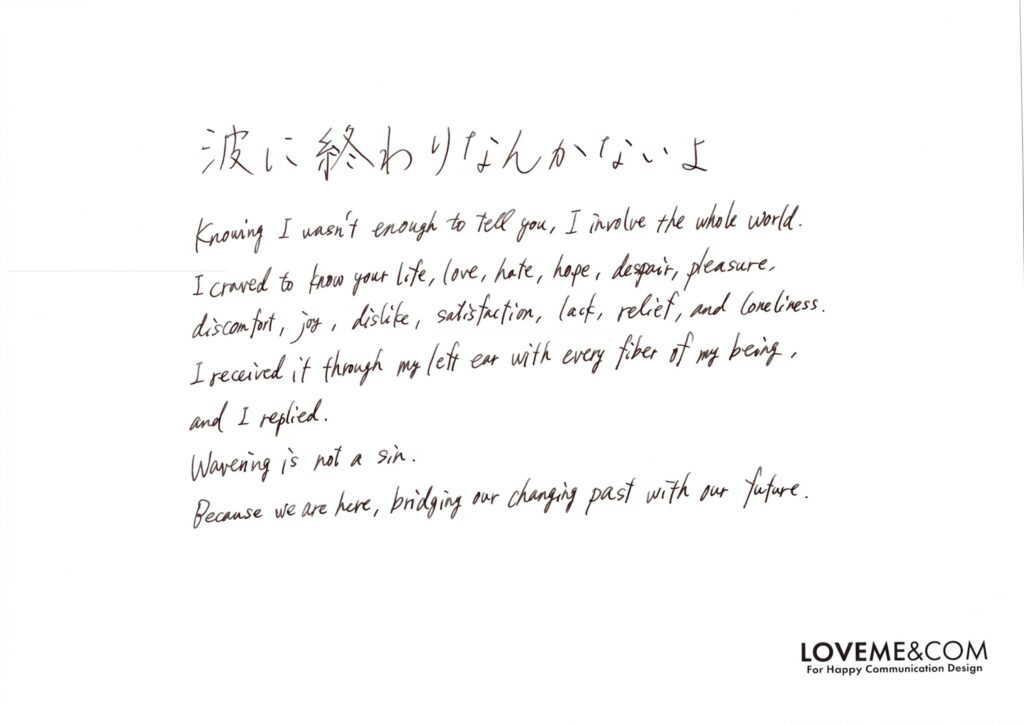 波に終わりなんかないよ
Knowing I wasn't enough to tell you, I involve the whole world.
I craved to know your life, love, hate, hope, despair, pleasure,
discomfort, joy, dislike, satisfaction, lack, relief, and loneliness.
I received it through my left ear with every fiber of my being,
and I replied.
Wavering is not a sin.
Because we are here, bridging our changing past with our future.
LOVEME&COM
For Happy Communication Design